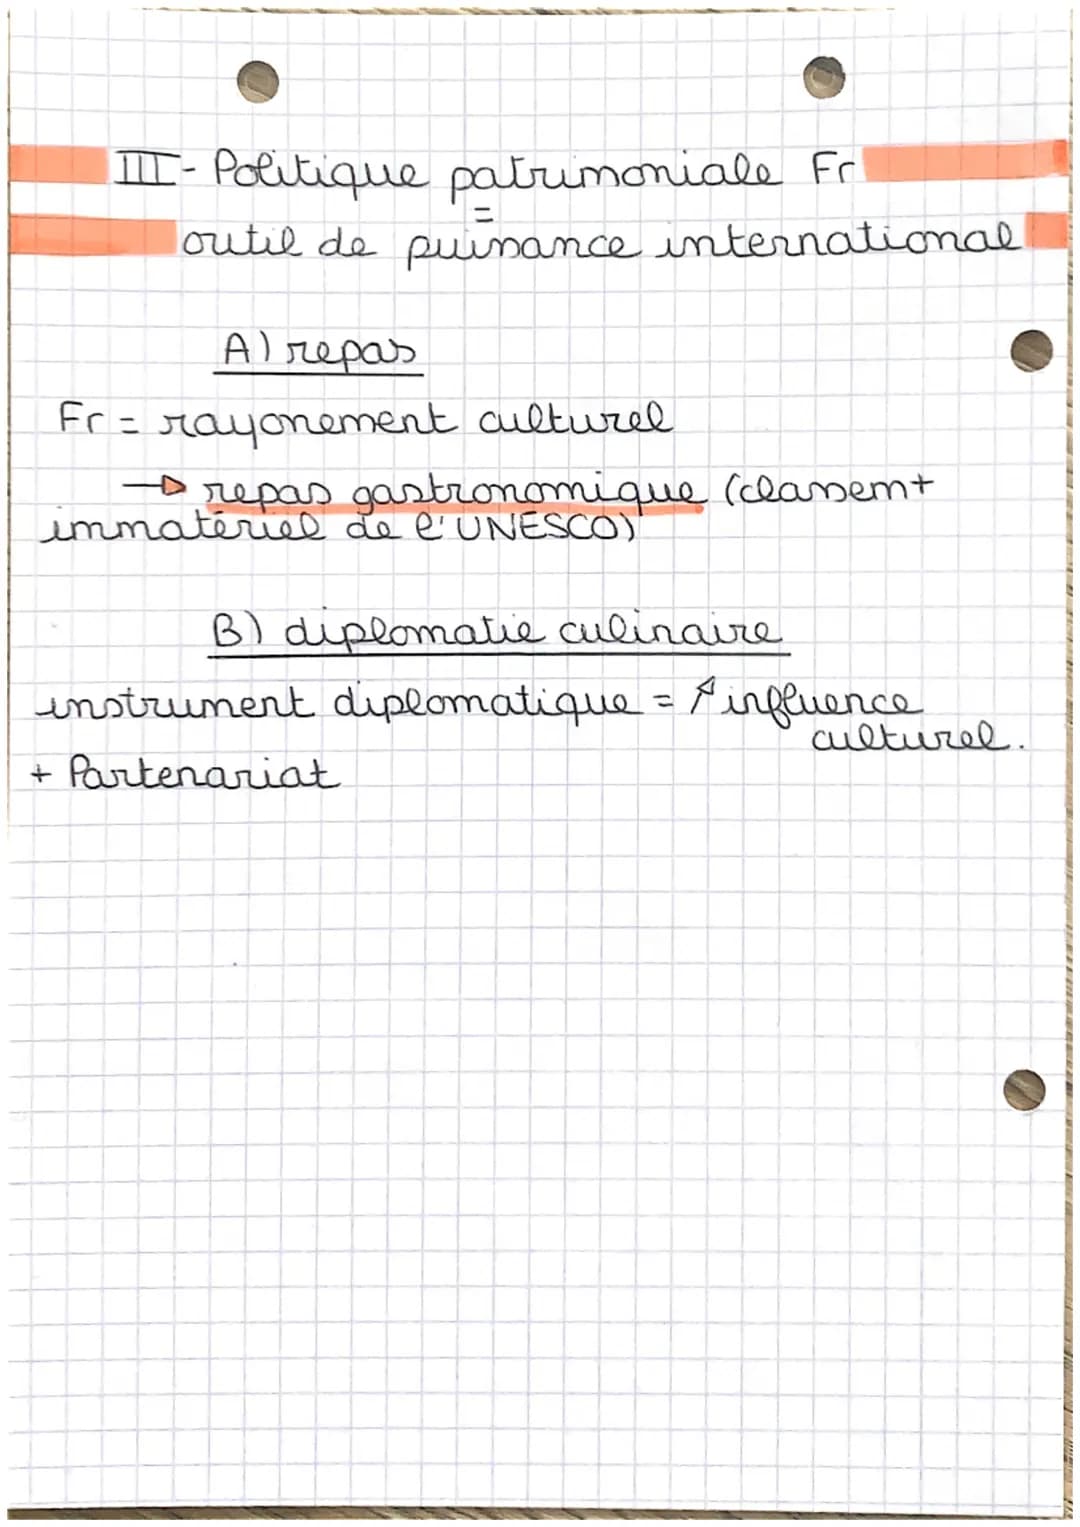 III - Politique patrimoniale Fr
=
outil de puissance international
A) repas
Fr = rayonement culturel
→ repas gastronomique (classemt
immatériel de l'UNESCO)
B) diplomatie culinaire
instrument diplomatique = ↗ influence
culturel.
+ Partenariat